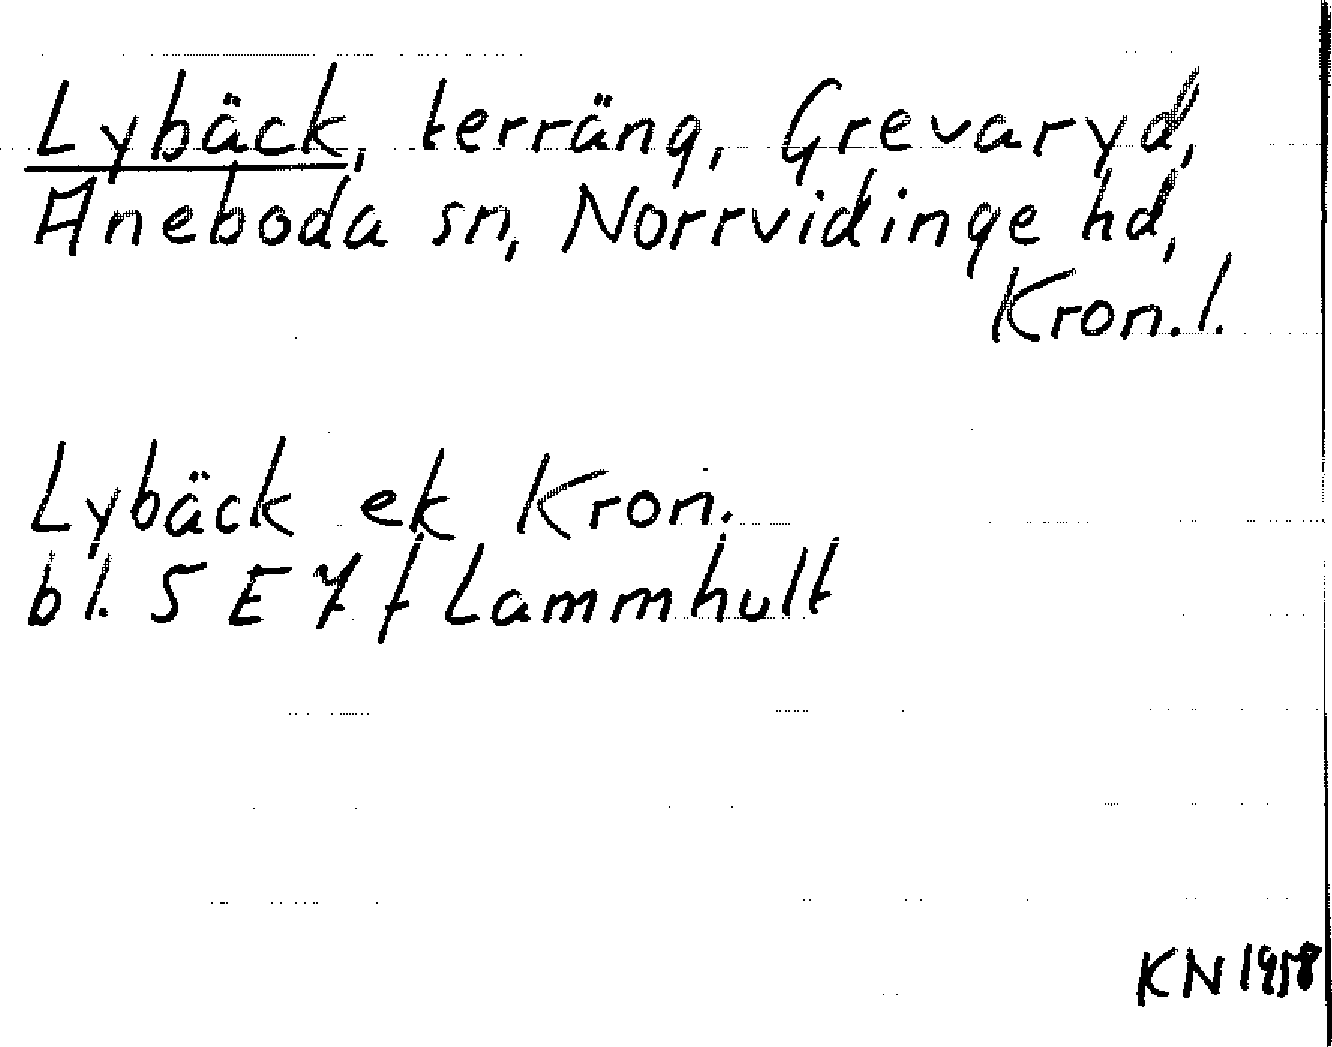 Lybäck, terräng, Grevaryd,
Aneboda sn, Norrvidinge hd,
Kron. l.
Lybäck ek Kron.
bl. 5 E 7 f Lammhult
KN 1958